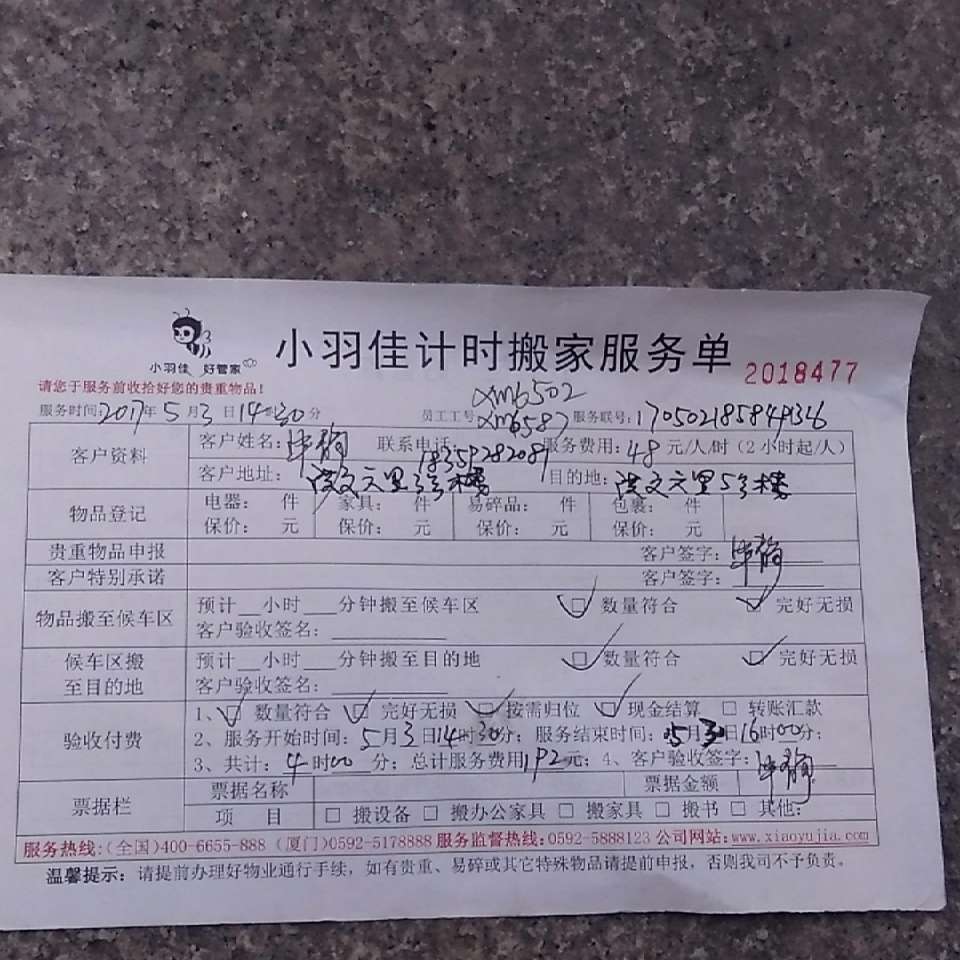 小羽佳 好管家
小羽佳计时搬家服务单 2018477
请您于服务前收拾好您的贵重物品!
XM6502
服务时间:2017年5月3日14时30分 员工工号 XM6587 服务联号:
客户资料 客户姓名: 联系电话: 服务费用:48元/人/时(2小时起/人)
18359282089
客户地址: 洪文六里3号楼 目的地:洪文六里5号楼
物品登记 电器: 件 家具: 件 易碎品: 件 包裹: 件
保价: 元 保价: 元 保价: 元 保价: 元
贵重物品申报 客户签字:
客户特别承诺 客户签字:
物品搬至候车区 预计__小时___分钟搬至候车区 ☑ 数量符合 ☑ 完好无损
客户验收签名:
候车区搬至目的地 预计__小时___分钟搬至目的地 ☑ 数量符合 ☑ 完好无损
客户验收签名:
验收付费 1、☑ 数量符合 ☑ 完好无损 ☑ 按需归位 ☑ 现金结算 □ 转账汇款
2、服务开始时间:5月3日14时30分;服务结束时间:05月3日16时00分;
3、共计:4时00分;总计服务费用192元;4、客户验收签字:
票据栏 票据名称 票据金额
项 目 □ 搬设备 □ 搬办公家具 □ 搬家具 □ 搬书 □ 其他:
服务热线:(全国)400-6655-888 (厦门)0592-5178888 服务监督热线:0592-5888123 公司网站:www.xiaoyujia.com
温馨提示:请提前办理好物业通行手续,如有贵重、易碎或其它特殊物品请提前申报,否则我司不予负责。